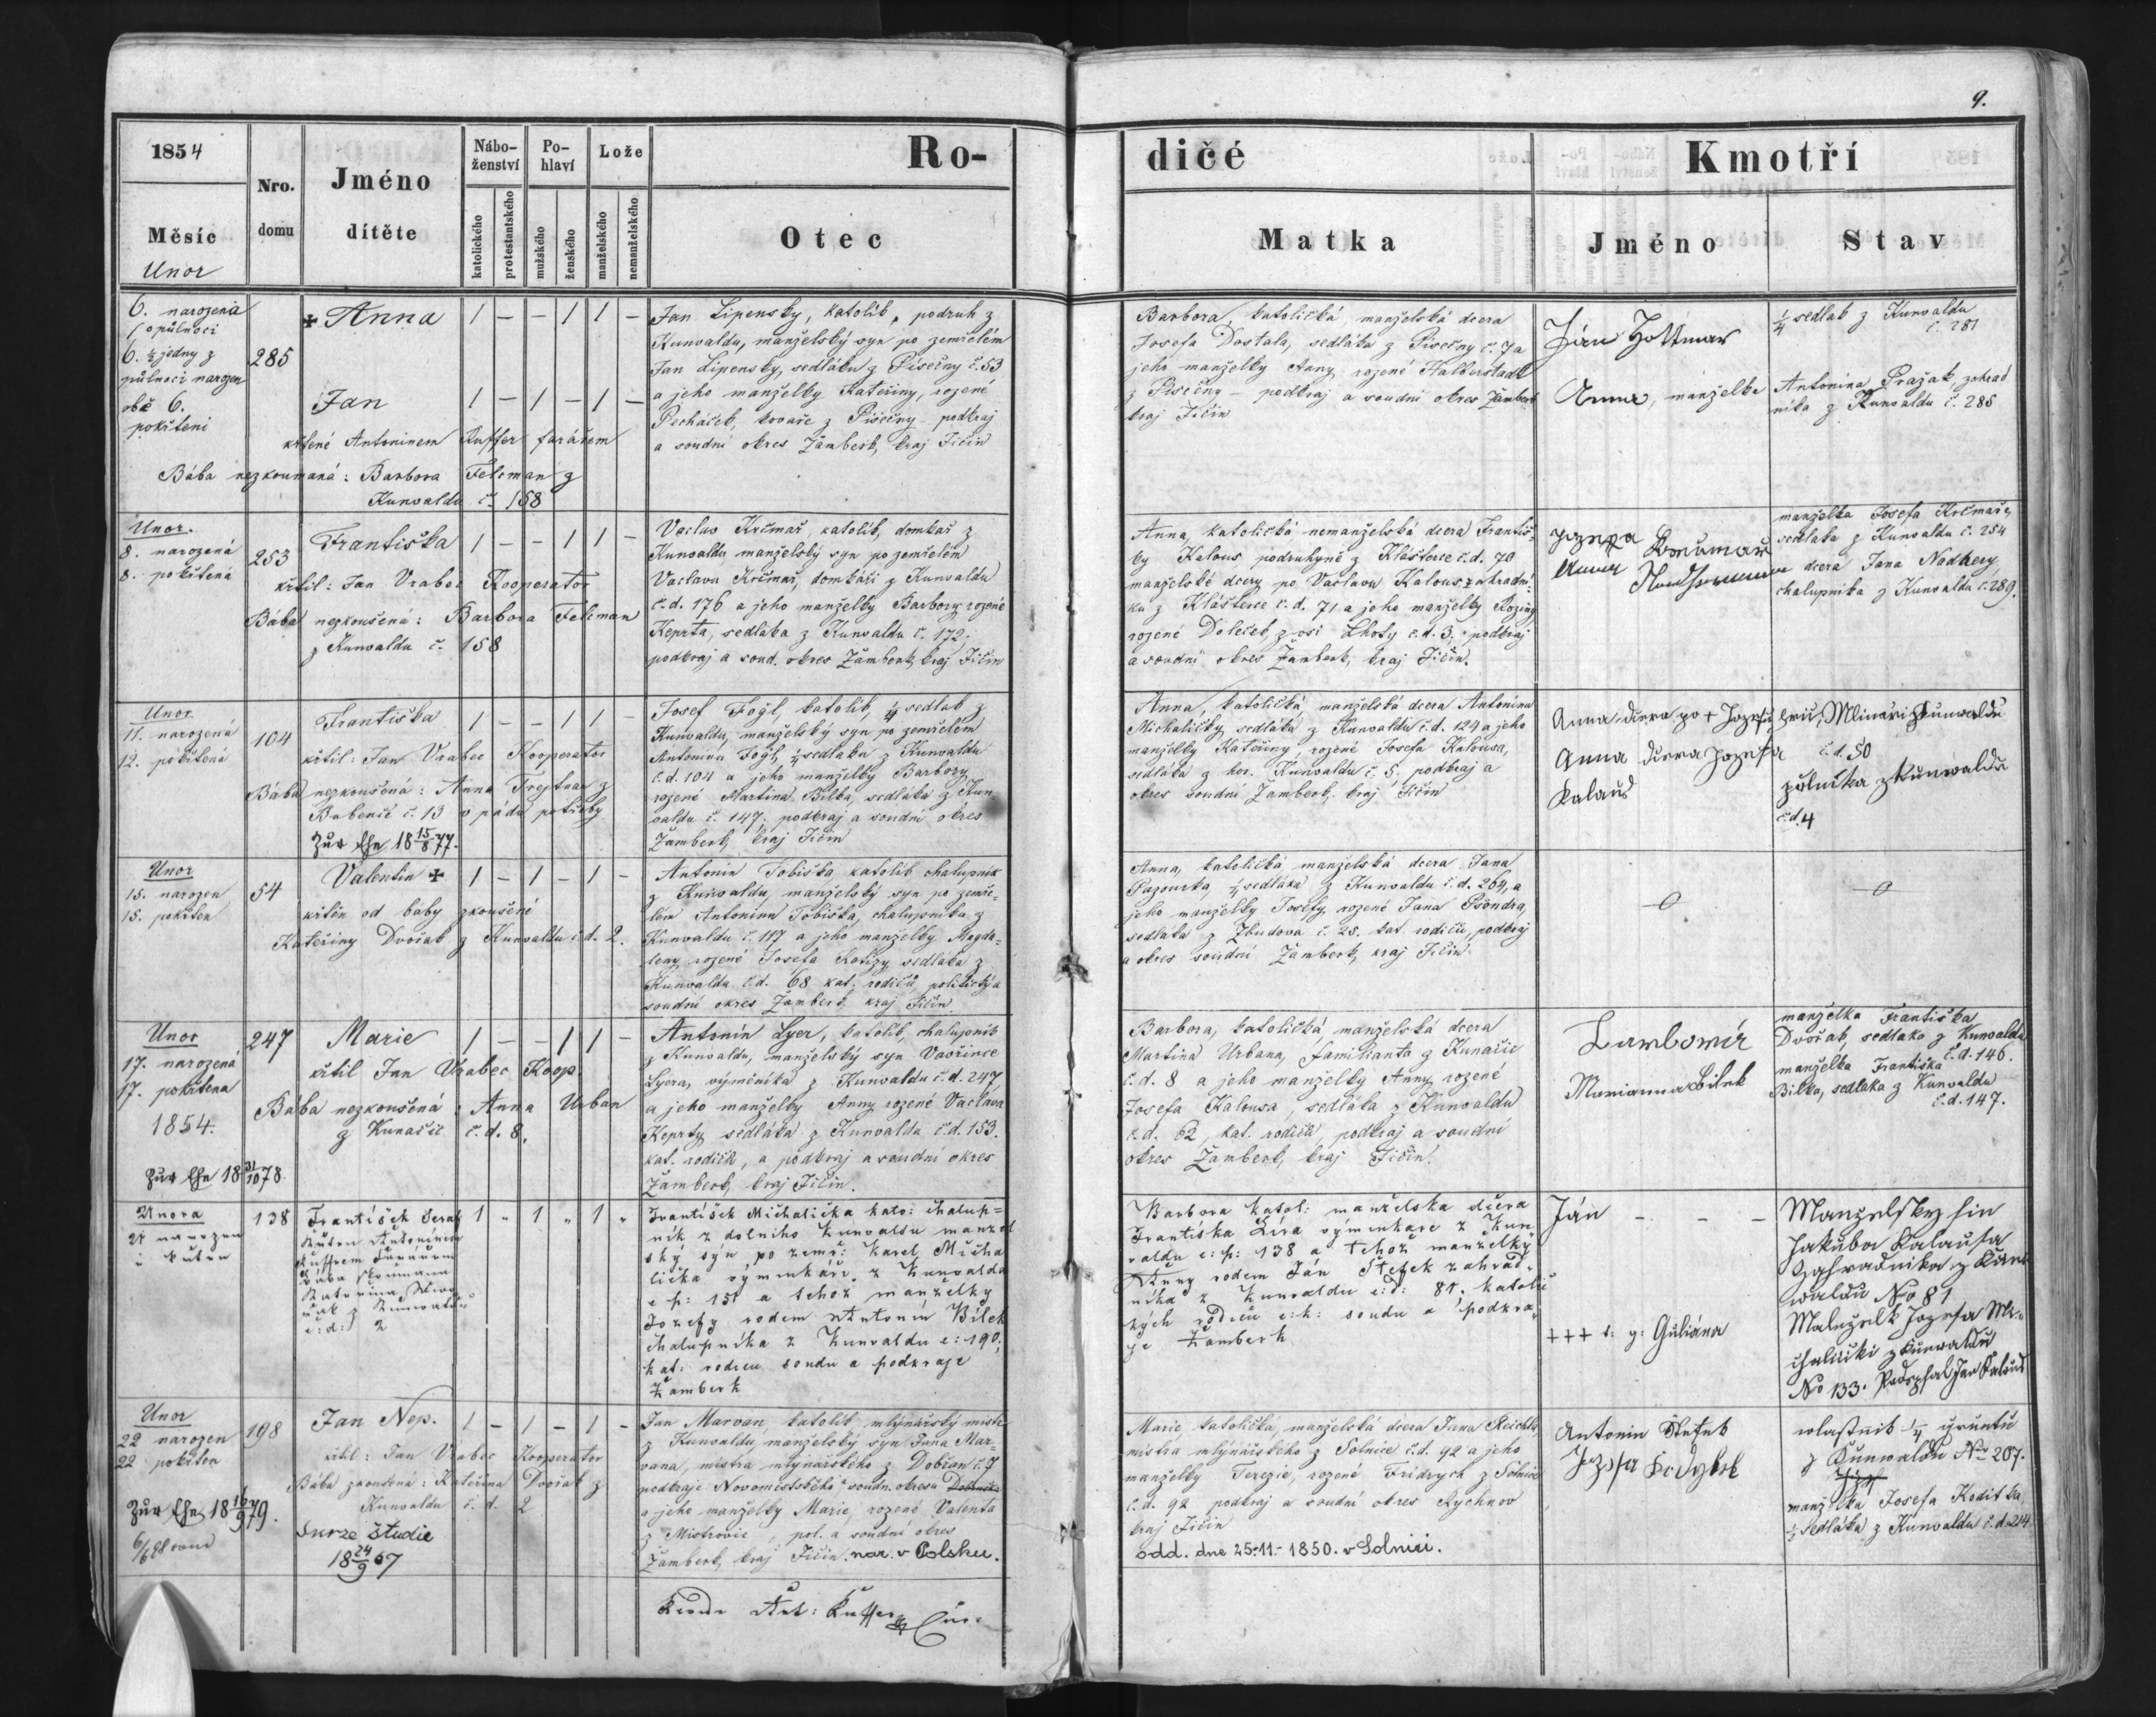 9.
1854
Měsíc
Unor
Nro.
domu
Jméno
dítěte
Nábo-
ženství
katolického
protestantského
Po-
hlaví
mužského
ženského
Lože
manželského
nemanželského
Ro-
dičé
Otec
Matka
Kmotří
Jméno
Stav
6. narozená
o půlnoci
6. ½ jedny z
půlnoci narozen
oba 6.
pokřteni
285
Anna 1 – – 1 1 –
Jan 1 – 1 – 1 –
křtené Antoninem Kuffer farářem
Bába nezkoumaná: Barbora Felcman z
Kunvaldu č. 158
Jan Lipensky, katolík, podruh z
Kunvaldu, manželský syn po zemřelém
Jan Lipensky, sedláku z Písečny č. 53
a jeho manželky Kateřiny, rojené
Pecháček, kovaře z Písečny – podkraj
a soudní okres Žamberk, kraj Jičín
Barbora, katolička, manželská dcera
Josefa Dostala, sedláka z Písečny č. 7 a
jeho manželky Anny rozené Halberstadt
z Písečny – podkraj a soudni okres Žamberk
kraj Jičín
Ján
Anna, manželka
¼ sedlak z Kunvaldu
č. 281
Antonina Pražak, zahrad
nika z Kunvaldu č. 285
Unor.
8. narozená
8. pokřtená
253
Františka 1 – – 1 1 –
křtil: Jan Vrabec Kooperator
Bába nezkoušená: Barbora Felcman
z Kunvaldu č. 158
Vaclav Krčmař, katolík, domkař z
Kunvaldu, manželský syn po zemřelém
Vaclavu Krčmař, domkáři z Kunvaldu
č.d. 176 a jeho manželky Barbory rozené
Keprta, sedláka z Kunvaldu č. 172.
podkraj a soud. okres Žamberk, kraj Jičín
Anna, katolička nemanželská dcera Františ-
ky Kalous podruhyně z Klášterce č.d. 70
manželské dcery po Vaclavu Kalous zahradni-
ku z Klášterce č.d. 71 a jeho manželky Roziny
rojené Doleček, z osi Lhoty č.d. 3. podkraj
a soudni okres Žamberk, kraj Jičín.
Jozefa Krčmař
Anna
manželka Josefa Krčmaře
sedlaka z Kunvaldu č. 254
dcera Jana Nadhery
chalupnika z Kunvaldu č. 289.
Unor
11. narozená
12. pokřtená
104
Františka 1 – – 1 1 –
křtil: Jan Vrabec Kooperator
Bába nezkoušená: Anna Frejtnar z
Bubenči č. 13 v pádu potřeby
Zur Ehe 18 15/8 77.
Josef Fogl, katolík, ¼ sedlak z
Kunvaldu, manželský syn po zemřelém
Antoninu Fogl, ¼ sedlaku z Kunvaldu
č.d. 104 a jeho manželky Barbory
rojené Martina Bilka, sedláka z Kun
valdu č. 147, podkraj a soudni okres
Žamberk, kraj Jičín
Anna, katolička manželská dcera Antonina
Michaličky, sedláka z Kunvaldu č.d. 124 a jeho
manželky Kateřiny rozené Josefa Kalousa,
sedláka z hor. Kunvaldu č. 5. podkraj a
okres soudni Žamberk, kraj Jičín
Anna dcera po + Jozefu
Anna dcera Jozefa
Kalaus
Mlinári z Kunwaldu
č.d. 50
půlnika z Kunwaldu
č.d. 4
Unor
15. narozen
15. pokřten
54
Valentin 1 – 1 – 1 –
křtěn od báby zkoušené
Kateřiny Dvořak z Kunvaldu č.d. 2.
Antonin Tobiška, katolík chalupnik
z Kunvaldu, manželský syn po zemře-
lém Antoninu Tobiška, chalupniku z
Kunvaldu č. 117 a jeho manželky Magda-
leny rojené Josefa Kotizy, sedláka z
Kunvaldu č.d. 68 kat. rodičů politický a
soudni okres Žamberk, kraj Jičín
Anna, katolička manželská dcera Jana
Pazourka, ¼ sedláka z Kunvaldu č.d. 264, a
jeho manželky Josefy rozené Jana Pšondra,
sedlaka z Zbudova č. 25. kat. rodičů, podkraj
a okres soudni Žamberk, kraj Jičín
Unor
17. narozená
17. pokřtena
1854.
Zur Ehe 18 31/10 78
247
Marie 1 – – 1 1 –
křtil Jan Vrabec Koop.
Bába nezkoušená: Anna Urban
z Kunačic č.d. 8.
Antonín Lyer, katolík, chalupník
z Kunvaldu, manželský syn Vavřince
Lyera, výměnika z Kunvaldu č.d. 247,
a jeho manželky Anny rozené Vaclava
Keprty sedláka z Kunvaldu č.d. 153.
kat. rodičů, a podkraj a soudni okres
Žamberk, kraj Jičín.
Barbora, katolička, manželská dcera
Martina Urbana, familianta z Kunačic
č.d. 8 a jeho manželky Anny rozené
Josefa Kalousa, sedláka z Kunvaldu
č.d. 62, kat. rodičů, podkraj a soudni
okres Žamberk, kraj Jičín.
Marianna Bilek
manželka Františka
Dvořak, sedlaka z Kunvaldu
č.d. 146.
manželka Františka
Bilka, sedlaka z Kunvaldu
č.d. 147.
Unora
138
František Seraf 1 " 1 " 1 "
Kuffrem
Katerina
z Kunwaldu
c:d: 2
František Michalička kato: chalup=
nik z dolniho Kunvaldu manžel
ský syn po zemř: Karel Micha
lička výminkáři z Kunvalda
c p: 151 a tehož manželky
Jozefy rodem Antonin Bílek
chalupnika z Kunvaldu c: 190,
kat: rodicu soudu a podkraje
Žamberk
Barbora katol: manželska dcera
Františka Lira výminkare z Kun
valdu c: p: 138 a tehož manželky
Anny rodem Ján Štefek zahrad-
nika z Kunvaldu c:d: 81. katolic
kých rodicu c:k: soudu a podkra
je Žamberk
Ján – – –
+++ Guliána
Manzelsky sin
Jakuba Kalausa
Zahradnika z Kun
waldu No 81
Jozefa Mi-
chalicki z Kunwaldu
No 133. Podepsal Jan Kalaus
Unor
22 narozen
22 pokřten
Zur Ehe 18 16/9 79.
198
Jan Nep. 1 – 1 – 1 –
křtil: Jan Vrabec Kooperator
Bába zkoušená: Kateřina Dvořak z
Kunvaldu č.d. 2
Skrze študie
18 24/9 67
Jan Marvan, katolík, mlýnářský mistr
z Kunvaldu, manželský syn Jana Mar-
vana, mistra mlynářského z Dobřan č. 7
podkraje Novoměstského soudn. okresu Dobruška
a jeho manželky Marie, rozené Valenta
z Mistrovic, pol. a soudní okres
Žamberk, kraj Jičín. nar. v Polsku.
Marie, katolička, manželská dcera Jana Reichla
mistra mlýnářského z Solnice č.d. 92 a jeho
manželky Terezie, rozené Fridrych z Solnice
č.d. 92 podkraj a soudni okres Rychnov
kraj Jičín
odd. dne 25.-11.-1850. v Solnici.
Antonin Štefek
wlastnik ¼ gruntu
z Kunwaldu No 207.
manželka Josefa Koditka
½ sedláka z Kunvaldu č.d. 214
Ant: Kuffer